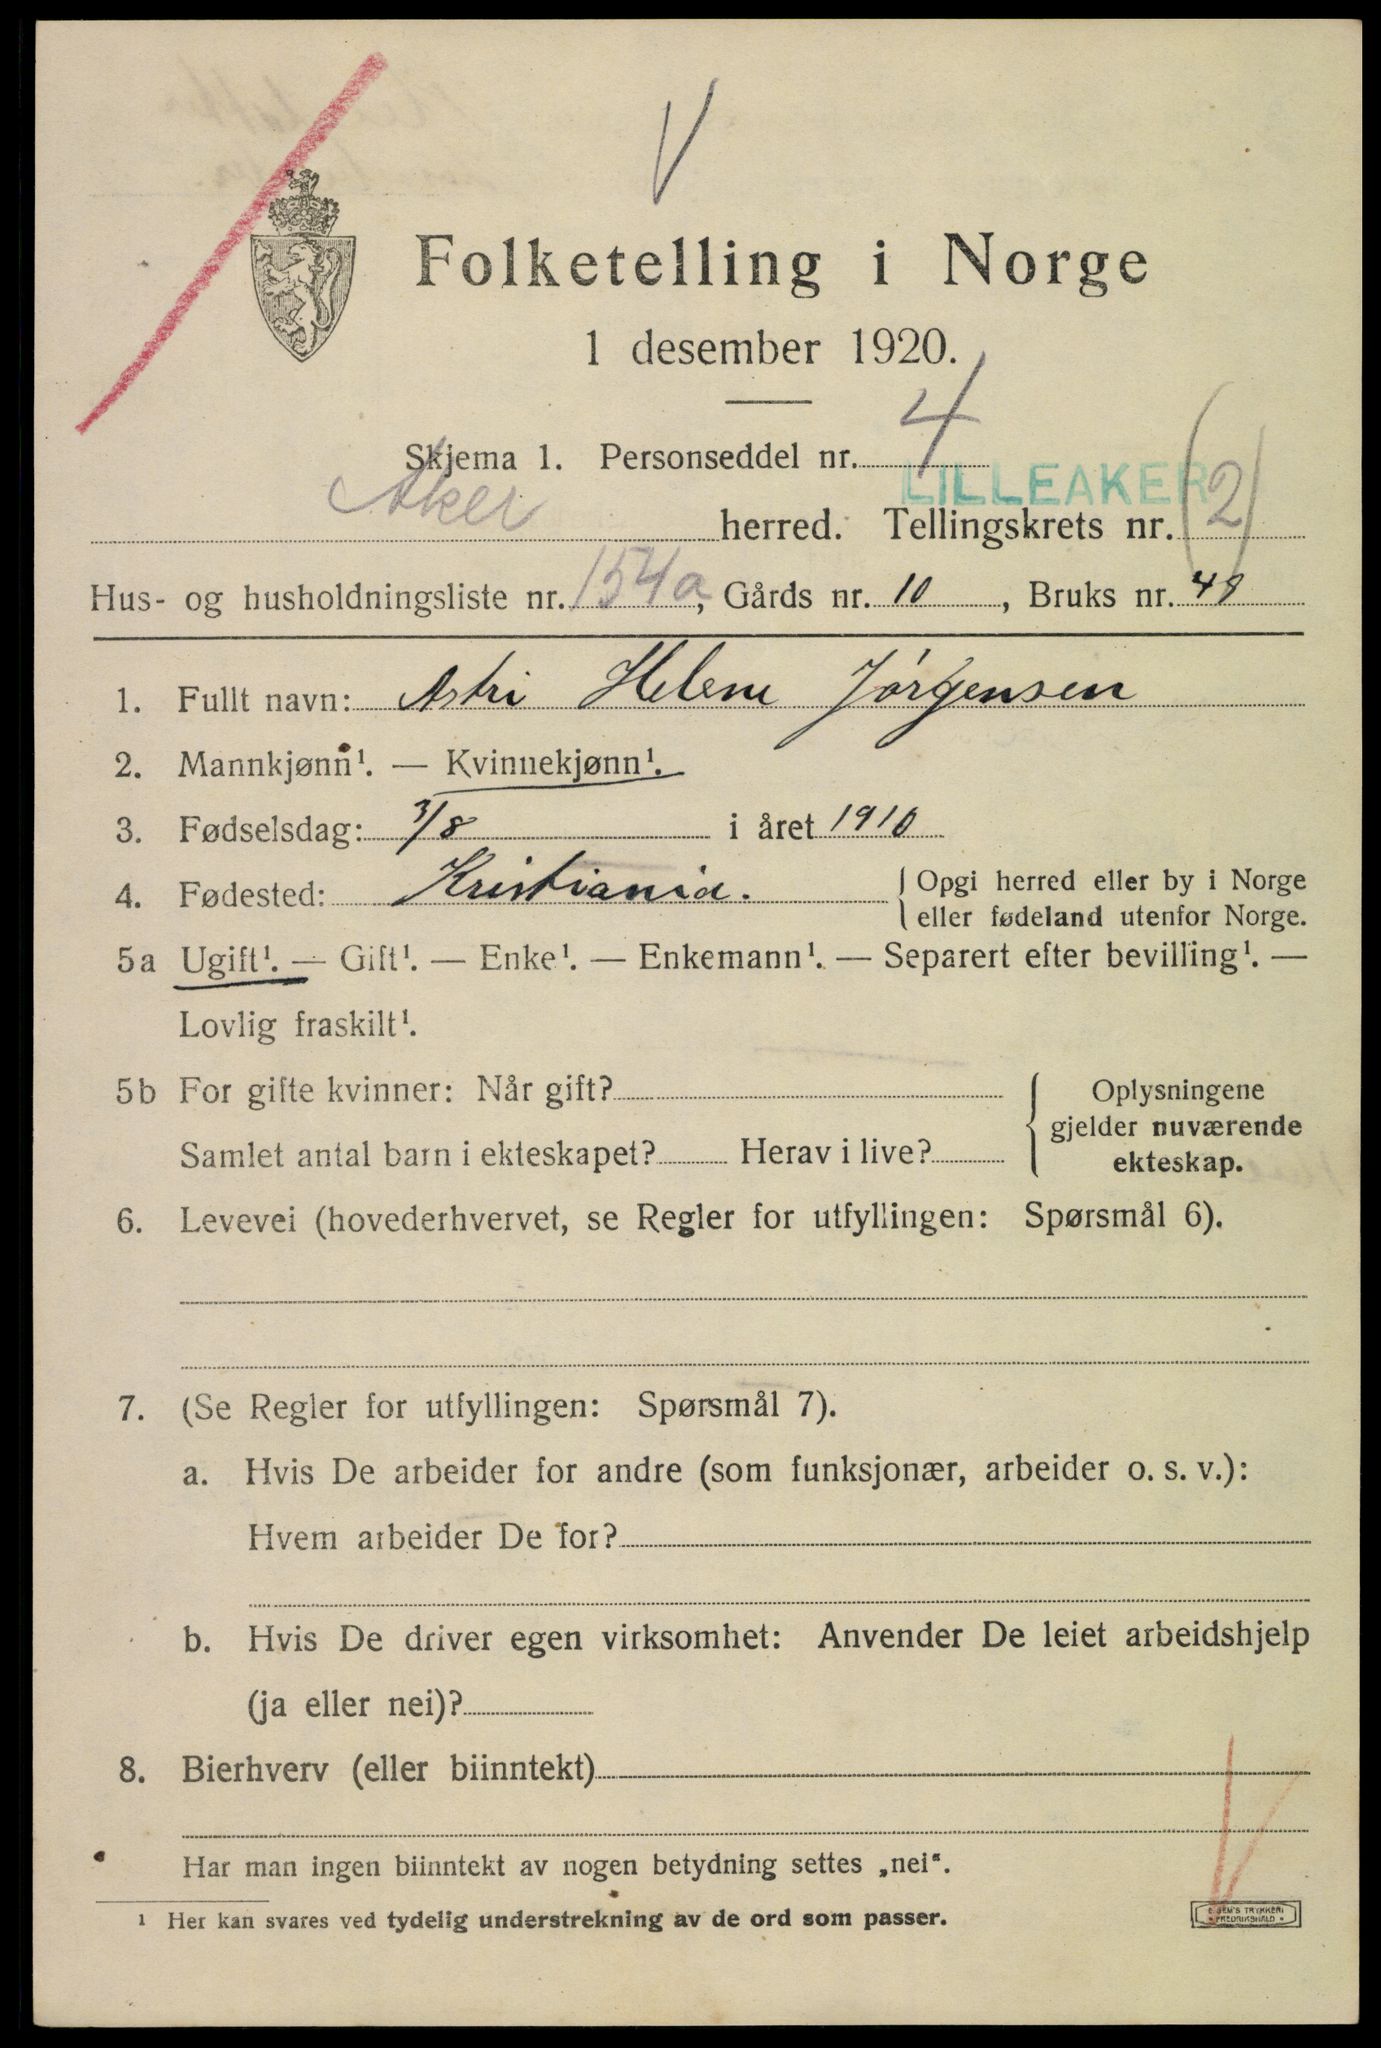 Folketelling i Norge
1 desember 1920.
Skjema 1. Personseddel nr. 4
LILLEAKER
Aker herred. Tellingskrets nr. (2)
Hus- og husholdningsliste nr. 154a, Gårds nr. 10, Bruks nr. 49
1. Fullt navn: Astri Helene Jørgensen
2. Mannkjønn¹. — Kvinnekjønn¹.
3. Fødselsdag: 3/8 i året 1910
4. Fødested: Kristiania. { Opgi herred eller by i Norge
eller fødeland utenfor Norge.
5a Ugift¹. — Gift¹. — Enke¹. — Enkemann¹. — Separert efter bevilling¹. —
Lovlig fraskilt¹.
5b For gifte kvinner: Når gift?
Samlet antal barn i ekteskapet? Herav i live?
{ Oplysningene
gjelder nuværende
ekteskap.
6. Levevei (hovederhvervet, se Regler for utfyllingen: Spørsmål 6).
7. (Se Regler for utfyllingen: Spørsmål 7).
a. Hvis De arbeider for andre (som funksjonær, arbeider o. s. v.):
Hvem arbeider De for?
b. Hvis De driver egen virksomhet: Anvender De leiet arbeidshjelp
(ja eller nei)?
8. Bierhverv (eller biinntekt)
Har man ingen biinntekt av nogen betydning settes „nei“.
¹ Her kan svares ved tydelig understrekning av de ord som passer.
TRYKKERI
FREDRIKSHALD